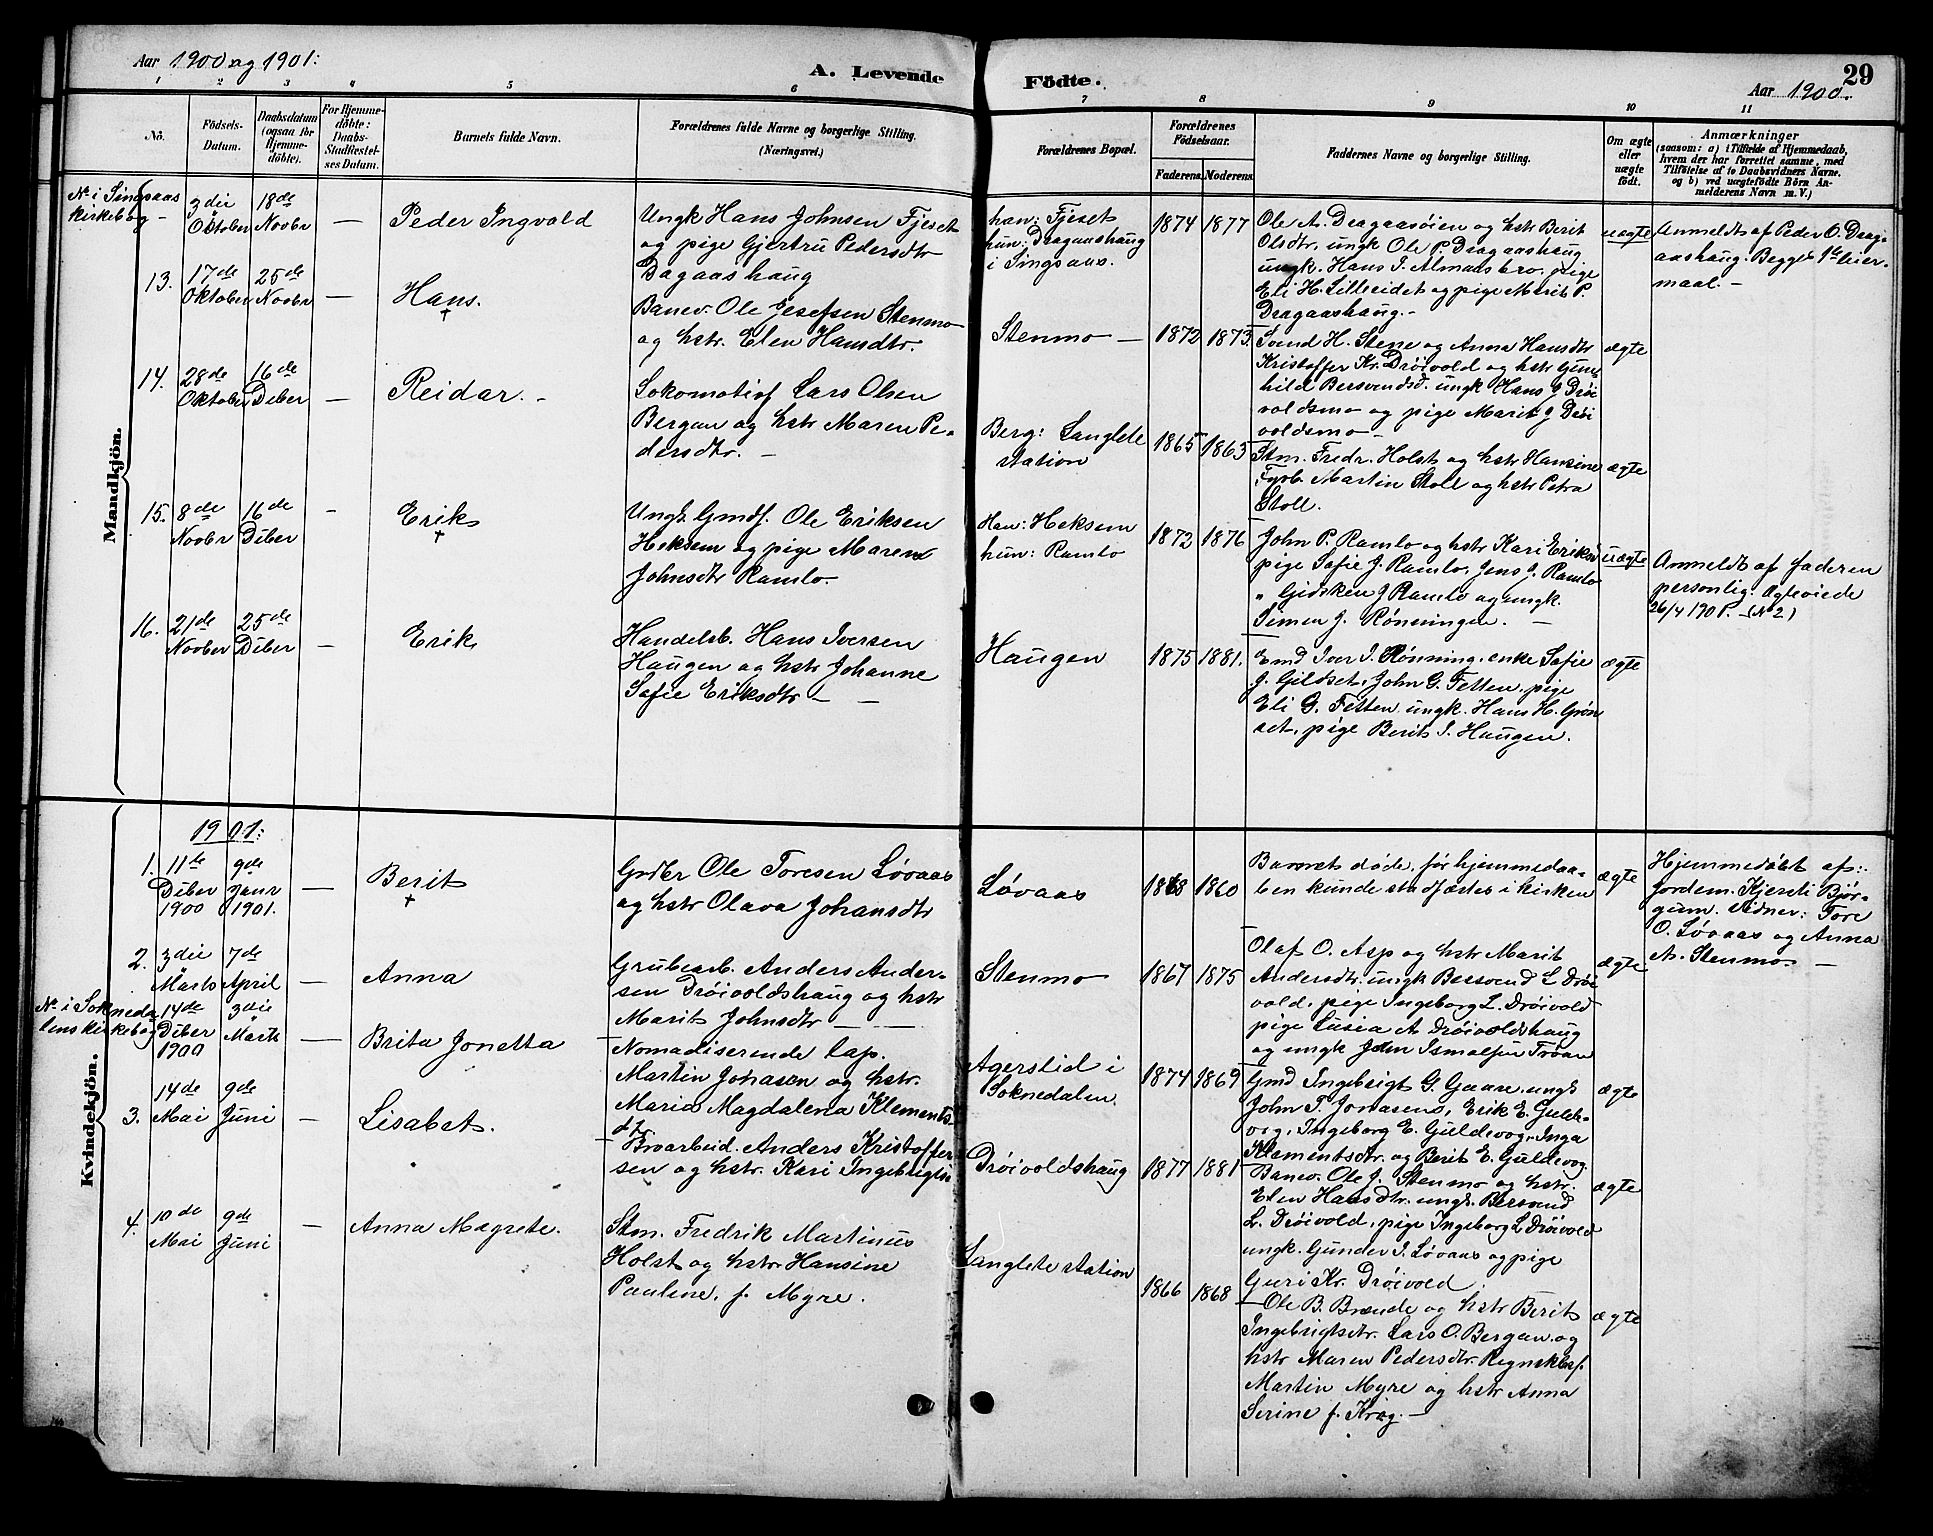 Aar 1900 og 1901.
A. Levende
Födte.
29
Aar 1900.
1 2 3 4 5 6 7 8 9 10 11
No.
Födsels-
Datum.
Daabsdatum
(ogsaa for
Hjemme-
döbte).
For Hjemme-
döbte:
Daabs-
Stadfæstel-
ses Datum.
Barnets fulde Navn.
Forældrenes fulde Navne og borgerlige Stilling.
(Næringsvei.)
Forældrenes Bopæl.
Forældrenes
Födselsaar.
Faderens. Moderens.
Faddernes Navne og borgerlige Stilling.
Om ægte
eller
uægte
født.
Anmærkninger
(saasom: a) i Tilfælde af Hjemmedaab,
hvem der har forrettet samme, med
Tilföielse af to Daabsvidners Navne.
og b) ved uægtefödte Börn An-
melderens Navn m. V.)
Mandkjön.
N. i Singsaas
kirkebog -
3die
Oktober
18de
Novbr
—
Peder Ingvold
Ungk Hans Johnsen Fjeset
og pige Gjertru Pedersdtr
Dagaashaug
han: Fjeset
hun: Dragaashaug
i Singsaas.
1874 1877
Ole A. Dragaasøien og hstr Berit
Olsdtr, ungk Ole P. Dragaashaug
ungk. Hans J. Almaasbro, pige
Eli H. Lilleeidet og pige Marit P.
Dragaashaug.-
uægte
Anmeldt af Peder O. Drag-
aashaug. Begges 1ste leier-
maal. -
13.
17de
Oktober
25de
Novbr
—
Hans.
†
Banev. Ole Josefsen Stenmo
og hstr. Elen Hansdtr.
Stenmo —
1872 1873.
Svend H. Stene og Anna Hansdtr
Kristoffer Kr. Drøivold og hstr Gun-
hild Bersvendsd. ungk Hans J Drøi
voldsmo og pige Marit J Drøi
voldsmo -
ægte
14.
28de
Oktober
16de
Dcber
—
Reidar. -
Lokomotivf Lars Olsen
Bergan og hstr Maren Pe-
dersdtr. -
Berg: Langlete
station
1865 1863
Stm. Fredr. Holst og hstr Hansine
Fyrb. Martin Stoll og hstr Petra
Stoll.
ægte
15.
8de
Novbr
16de
Dcber
-
Erik
†
Ungk. Gmdf. Ole Eriksen
Heksem og pige Maren
Johnsdtr Ramlo.
Han: Heksem
hun: Ramlo
1872 1876
John P. Ramlo og hstr Kari Eriksd
pige Sofie J. Ramlo, Jens J. Ramlo
" Gidsken J Ramlo og ungk.
Simen J. Rønningen. —
uægte
Anmeldt af faderen
personlig. Ægteviede
26/4 1901. - (No 2)
16.
21de
Novber
25de
Dcber
—
Erik
Handelsb. Hans Iversen
Haugen og hstr Johanne
Sofie Eriksdtr — —
Haugen
1875 1881.
Gmd Iver I. Rønning, enke Sofie
J. Gildset, John G. Fetten, pige
Eli G. Fetten ungk. Hans H. Grøn
set, pige Berit I. Haugen.
ægte
Kvindekjön.
1901:
1.
11te
Dcber
1900
9de
Janr
1901.
—
Berit
†
Gmdbr Ole Toresen Løvaas
og hstr Olava Johansdtr
Løvaas
1868 1860
Barnet døde, før hjemmedaa-
ben kunde stadfæstes i kirken
ægte
Hjemmedøbt af:
Jordem. Kjersti Bjør-
gum. Vidner: Tore
O. Løvaas og Anna
A. Stenmo. —
2.
3die
Marts
7de
April
—
Anna
Grubearb. Anders Ander-
sen Drøivoldshaug og hstr
Marit Johnsdtr — —
Stenmo
1867 1875
Olaf O. Asp og hstr Marit
Andersdtr. ungk Bersvend L Drøi
vold, pige Ingeborg L. Drøivold
pige Lusia A Drøivoldshaug
og ungk John Trøan
ægte
N. i Sokneda
lens kirkebog
14de
Dcber
1900
3die
Marts
—
Brita Jonetta
Nomadiserende lap.
Martin Jonasen og hstr.
Maria Magdalena Klements-
dtr
Agerslid i
Soknedalen.
1874 1869
Gmd Ingebrigt G. Gaare, ungk
John T. Jonasens, Erik E. Guldv-
vog, Ingeborg E. Guldevog, Inga
Klementsdtr. og Berit E. Guldevog
ægte
3.
14de
Mai
9de
Juni
—
Lisabet.
Broarbeid. Anders Kristoffer-
sen og hstr. Kari Ingebrigtsd
Drøivoldshaug
1877 1881
Banev. Ole J. Stenmo og hstr.
Elen Hansdtr. ungk. Bersvend
L. Drøivold, pige Ingeborg L Drøivold
ungk. Gunder I. Løvaas og pige
Guri Kr. Drøivold
ægte
4.
10de
Mai
9de
Juni
—
Anna Magrete.
Stm. Fredrik Martinus
Holst og hstr. Hansine
Pauline, f. Myre.
Langlete station
1866 1868
Ole B. Brænde og hstr Berit
Ingebrigtsdtr. Lars O. Bergan og
hstr Maren Pedersdtr. Regnskbsf.
Martin Myre og hstr Anna
Serine f. Krog. —
ægte